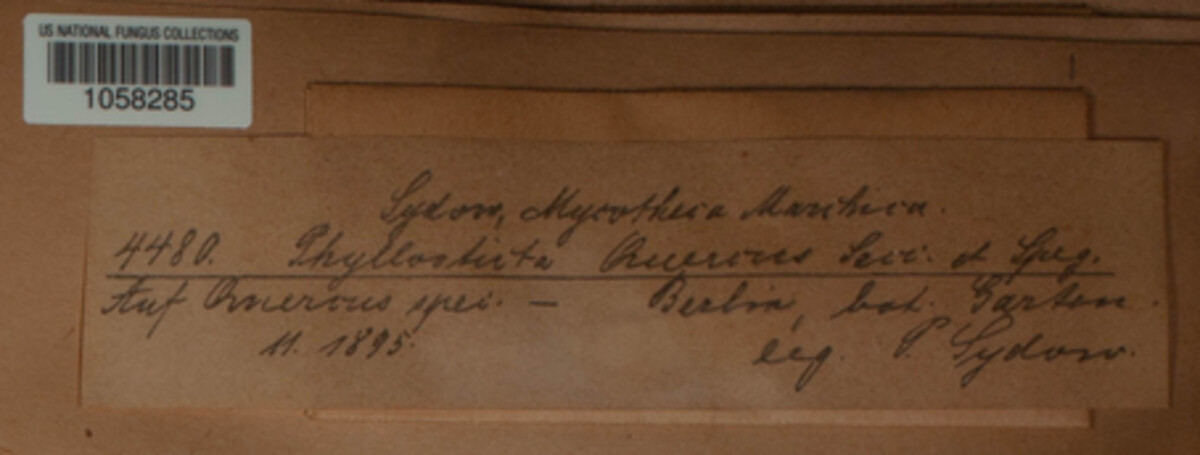 US NATIONAL FUNGUS COLLECTIONS
1058285
Sydow, Mycotheca Marchica.
4480. Phyllosticta Quercus Sacc. et Speg.
Auf Quercus spec. — Berlin, bot. Garten.
11. 1895. leg. P. Sydow.